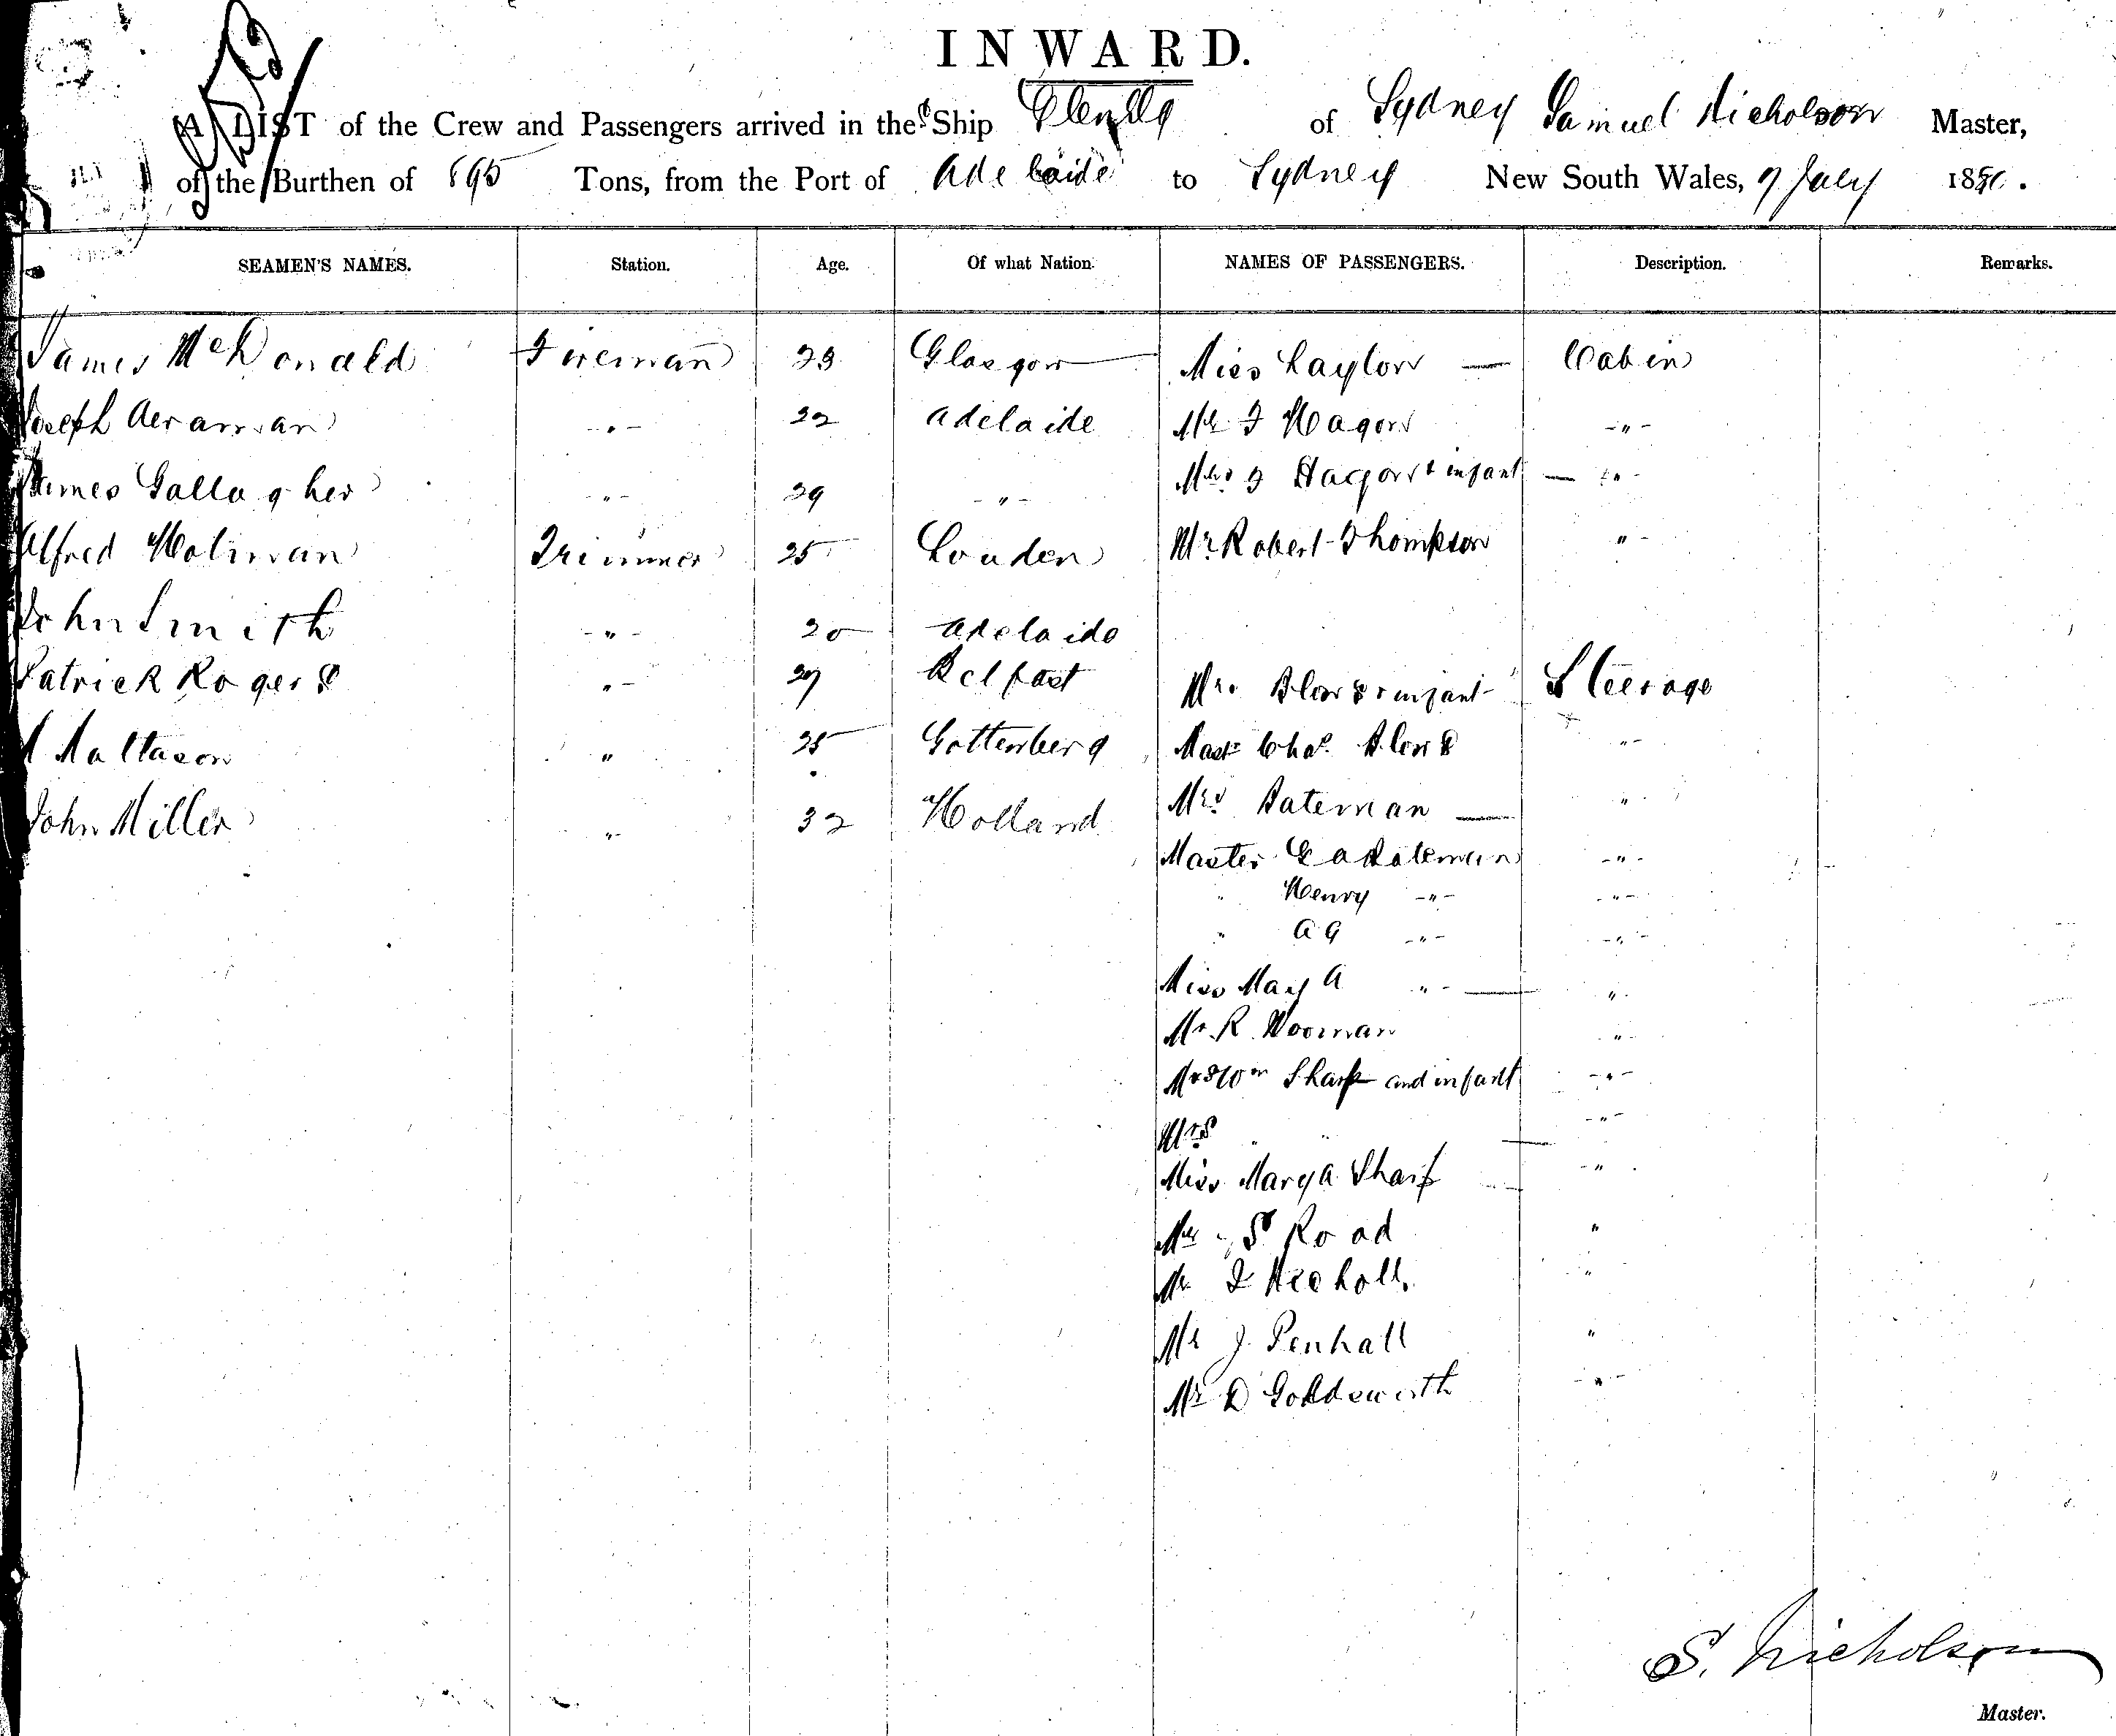 INWARD.
A LIST of the Crew and Passengers arrived in the Ship Glenelg of Sydney Samuel Nicholson Master,
of the Burthen of 895 Tons, from the Port of Adelaide to Sydney New South Wales, 9 July 18
SEAMEN'S NAMES. Station. Age. Of what Nation. NAMES OF PASSENGERS. Description. Remarks.
James McDonald Fireman 23 Glasgow Miss Taylor — Cabin
Joseph -"- 22 Adelaide Mr F Hagon -"-
James Gallagher -"- 29 -"- Mrs F Hagon & infant — "-
Alfred Holman Trimmer 25 London Mr Robert Thompson "-
John Smith -"- 20 Adelaide
Patrick Rogers "- 27 Belfast Mrs & infant Steerage
Mattason " 25 Gottenberg Mast Chas "-
John Miller "- 32 Holland Mrs Bateman — "
Master Bateman -"-
" Henry -"- -"-
" A G -"- -"-
Miss May A "- — "
Mr R Wooman "-
Mr Wm Sharp and infant -"-
Mrs " " -"-
Miss Mary A Sharp -"
Mr S Road "
Mr Nicholls "
Mr J. Penhall "
Mr D Goldsworth -"-
S. Nicholson
Master.